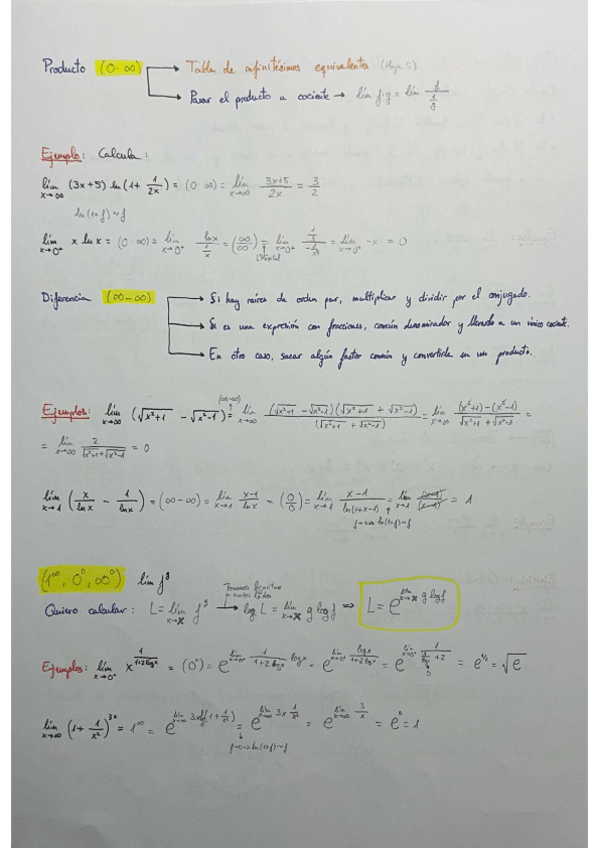 Producto (0·∞) → Tabla de infinitésimos equivalentes (Hoja 5)
→ Pasar el producto a cociente → lím f·g = lím f/(1/g)
Ejemplo: Calcula:
lím x→∞ (3x+5) ln(1+ 1/2x) = (0·∞) = lím x→∞ (3x+5)/2x = 3/2
ln(1+f)~f
lím x→0⁺ x ln x = (0·∞) = lím x→0⁺ ln x/(1/x) = (∞/∞) = lím x→0⁺ (1/x)/(-1/x²) = lím x→0⁺ -x = 0
L'Hôpital
Diferencia (∞-∞) → Si hay raíces de orden par, multiplicar y dividir por el conjugado.
→ Si es una expresión con fracciones, común denominador y llevarlo a un único cociente.
→ En otro caso, sacar algún factor común y convertirlo en un producto.
(∞-∞)
Ejemplos: lím x→∞ (√x²+1 - √x²-1) = lím x→∞ (√x²+1 - √x²-1)(√x²+1 + √x²-1)/(√x²+1 + √x²-1) = lím x→∞ (x²+1)-(x²-1)/√x²+1 + √x²-1 =
= lím x→∞ 2/√x²+1+√x²-1 = 0
lím x→1 (x/ln x - 1/ln x) = (∞-∞) = lím x→1 x-1/ln x = (0/0) = lím x→1 x-1/ln(1+x-1) = lím x→1 (x-1)/(x-1) = 1
ln(1+f)~f
(1^∞, 0⁰, ∞⁰) lím f^g
Tomamos logaritmos a ambos lados
Quiero calcular: L = lím f^g → log L = lím g log f ⇒ L = e^(lím g log f)
Ejemplos: lím x→0⁺ x^(1/(1+2log x)) = (0⁰) = e^(lím x→0⁺ 1/(1+2log x) log x) = e^(lím x→0⁺ log x/(1+2log x)) = e^(lím x→0⁺ 1/(1/log x +2)) = e^(1/2) = √e
lím x→∞ (1+ 1/x²)^3x = 1^∞ = e^(lím x→∞ 3x log(1+1/x²)) = e^(lím x→∞ 3x 1/x²) = e^(lím x→∞ 3/x) = e⁰ = 1
f→0 ⇒ ln(1+f)~f